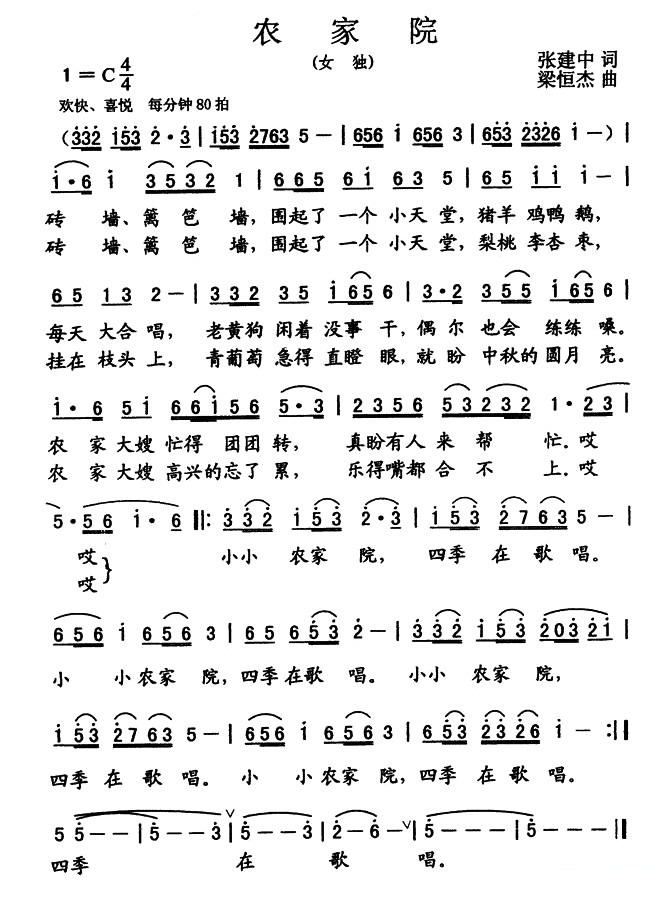 农家院
(女 独)
1=C 4/4
张建中 词
梁恒杰 曲
欢快、喜悦 每分钟80拍
(332 153 2·3|153 2763 5-|656 1 656 3|653 2326 1-)|
1·6 1 3532 1|665 61 63 5|65 11 1-|
砖 墙、篱 笆 墙,围起了 一个 小天 堂,猪羊 鸡鸭 鹅,
砖 墙、篱 笆 墙,围起了 一个 小天 堂,梨桃 李杏 枣,
65 13 2-|332 35 165 6|3·2 355 165 6|
每天 大合 唱, 老黄狗 闲着 没事 干,偶 尔 也会 练练 嗓。
挂在 枝头 上, 青葡萄 急得 直瞪 眼,就 盼 中秋的 圆月 亮。
1·6 51 66156 5·3|2356 53232 1·23|
农 家 大嫂 忙得 团团 转, 真盼有人 来 帮 忙.哎
农 家 大嫂 高兴的忘了 累, 乐得嘴都 合 不 上.哎
5·56 1·6 ‖:332 153 2·3|153 2763 5-|
哎} 小小 农家 院, 四季 在 歌 唱。
哎
656 1 656 3|65 653 2-|332 153 20321|
小 小 农家 院,四季 在 歌 唱。小小 农家 院,
153 2763 5-|656 1 656 3|653 2326 1-:‖
四季 在 歌 唱。小 小 农家 院,四季 在 歌 唱。
5 5--|5--3|5--3|2-6-|5---|5--‖
四季 在 歌 唱。